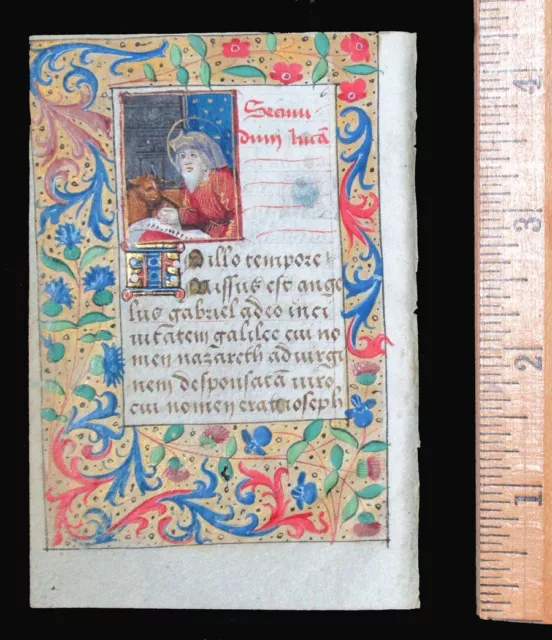 Secun
dum lucã
In illo tempore
missus est ange
lus gabriel a deo in ci
uitatem galilee cui no
men nazareth ad uirgi
nem desponsatam uiro
cui nomen erat ioseph
4
3
2
1